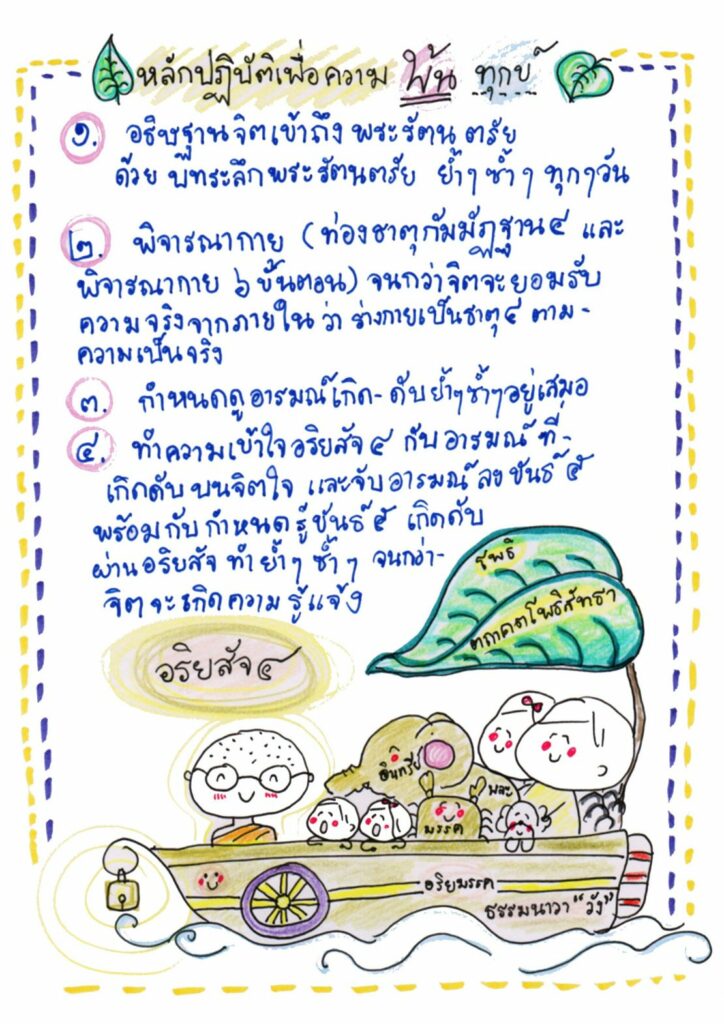 หลักปฏิบัติเพื่อความ พ้น ทุกข์
๑. อธิษฐานจิตเข้าถึง พระรัตนตรัย
ด้วย บทระลึกพระรัตนตรัย ย้ำๆ ซ้ำๆ ทุกๆวัน
๒. พิจารณากาย (ท่องธาตุกัมมัฏฐาน ๔ และ
พิจารณากาย ๖ ขั้นตอน) จนกว่าจิตจะยอมรับ
ความจริงจากภายใน ว่า ร่างกายเป็นธาตุ ๔ ตาม-
ความเป็นจริง
๓. กำหนดดูอารมณ์เกิด-ดับย้ำๆซ้ำๆอยู่เสมอ
๔. ทำความเข้าใจอริยสัจ ๔ กับอารมณ์ที่-
เกิดดับบนจิตใจ และจับอารมณ์ลงขันธ์ ๕
พร้อมกับกำหนดรู้ขันธ์ ๕ เกิดดับ
ผ่านอริยสัจ ทำย้ำๆ ซ้ำๆ จนกว่า-
จิตจะเกิดความรู้แจ้ง
โพธิ
ตถาคตโพธิสัทธา
อริยสัจ ๔
อินทรีย์
พละ
มรรค
อริยมรรค
ธรรมนาวา "วัง"